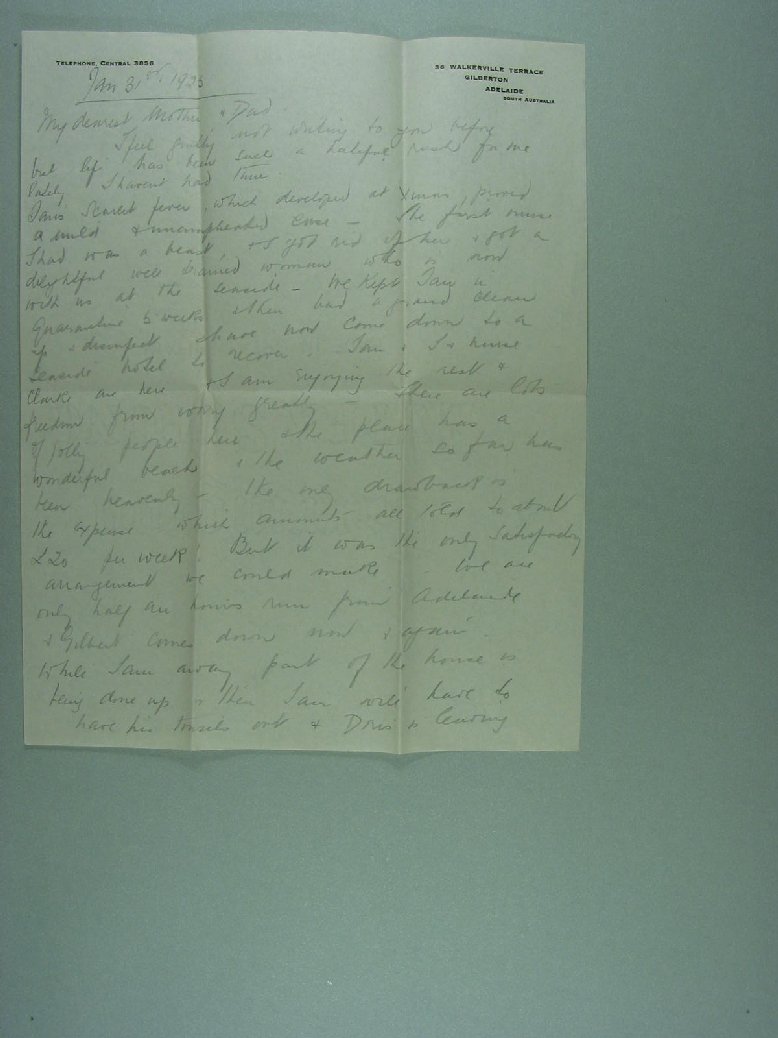 TELEPHONE, CENTRAL 3856
36 WALKERVILLE TERRACE
GILBERTON
ADELAIDE
SOUTH AUSTRALIA
Jan 31st 1925
My dearest Mother & Dad
I feel guilty not writing to you before
but life has been such a hateful rush for me
lately, I havent had time.
Ians Scarlet fever, which developed at Xmas, proved
a mild & uncomplicated case – The first nurse
I had was a beast, & I got rid of her & got a
delightful well trained woman who is now
with us at the seaside – We kept Ian in
quarantine 5 weeks & then had a grand clean
up & disinfect & have now come down to a
seaside hotel to recover. Ian & I & nurse
Clarke are here & I am enjoying the rest &
freedom from worry greatly – There are lots
of jolly people here & the place has a
wonderful beach & the weather so far has
been heavenly – The only drawback is
the expense which amounts all told to about
£20 per week! But it was the only satisfactory
arrangement we could make. We are
only half an hours run from Adelaide
& Gilbert comes down now & again.
While I am away part of the house is
being done up & then Ian will have to
have his tonsils out & Doris is leaving